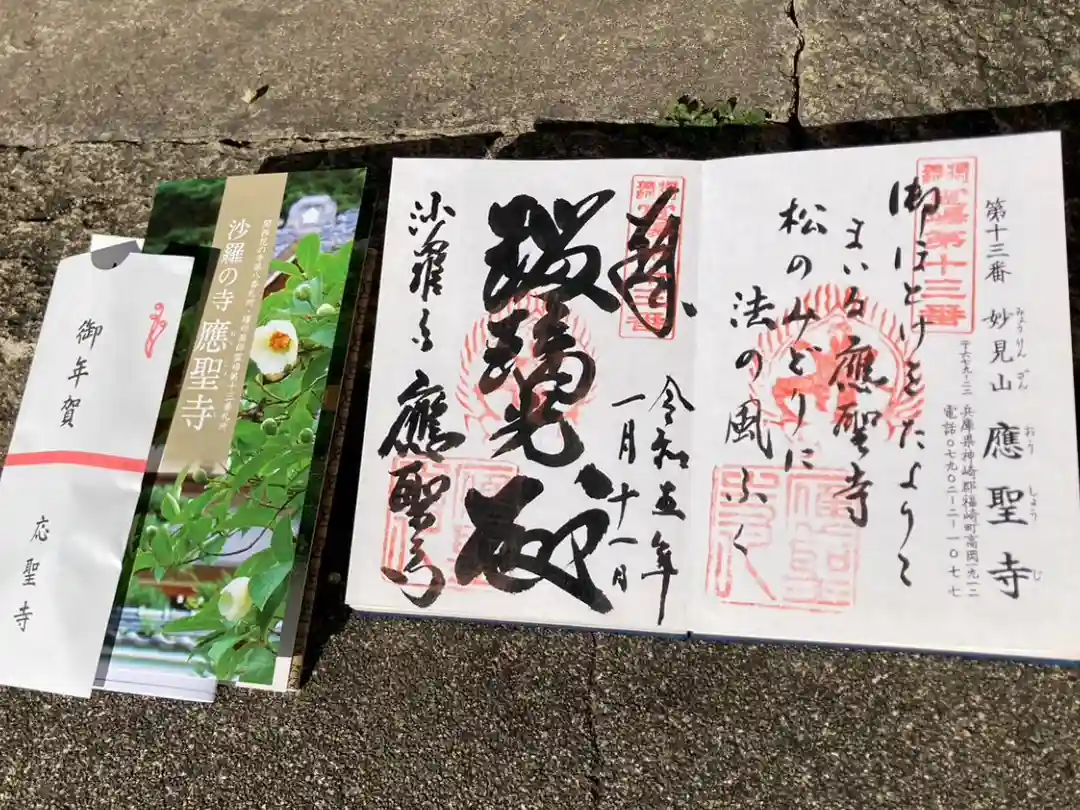 第十三番 妙見山 應聖寺
みょうけんざん おうしょうじ
兵庫県神崎郡福崎町高岡一九一二
電話〇七九〇-二二-一〇七七
御ほとけをたよりて
まいる應聖寺
松のみどりに
法の風ふく
奉拝
令和五年
一月十一日
瑠璃光殿
沙羅の寺
應聖寺
沙羅の寺 應聖寺
御年賀
応聖寺